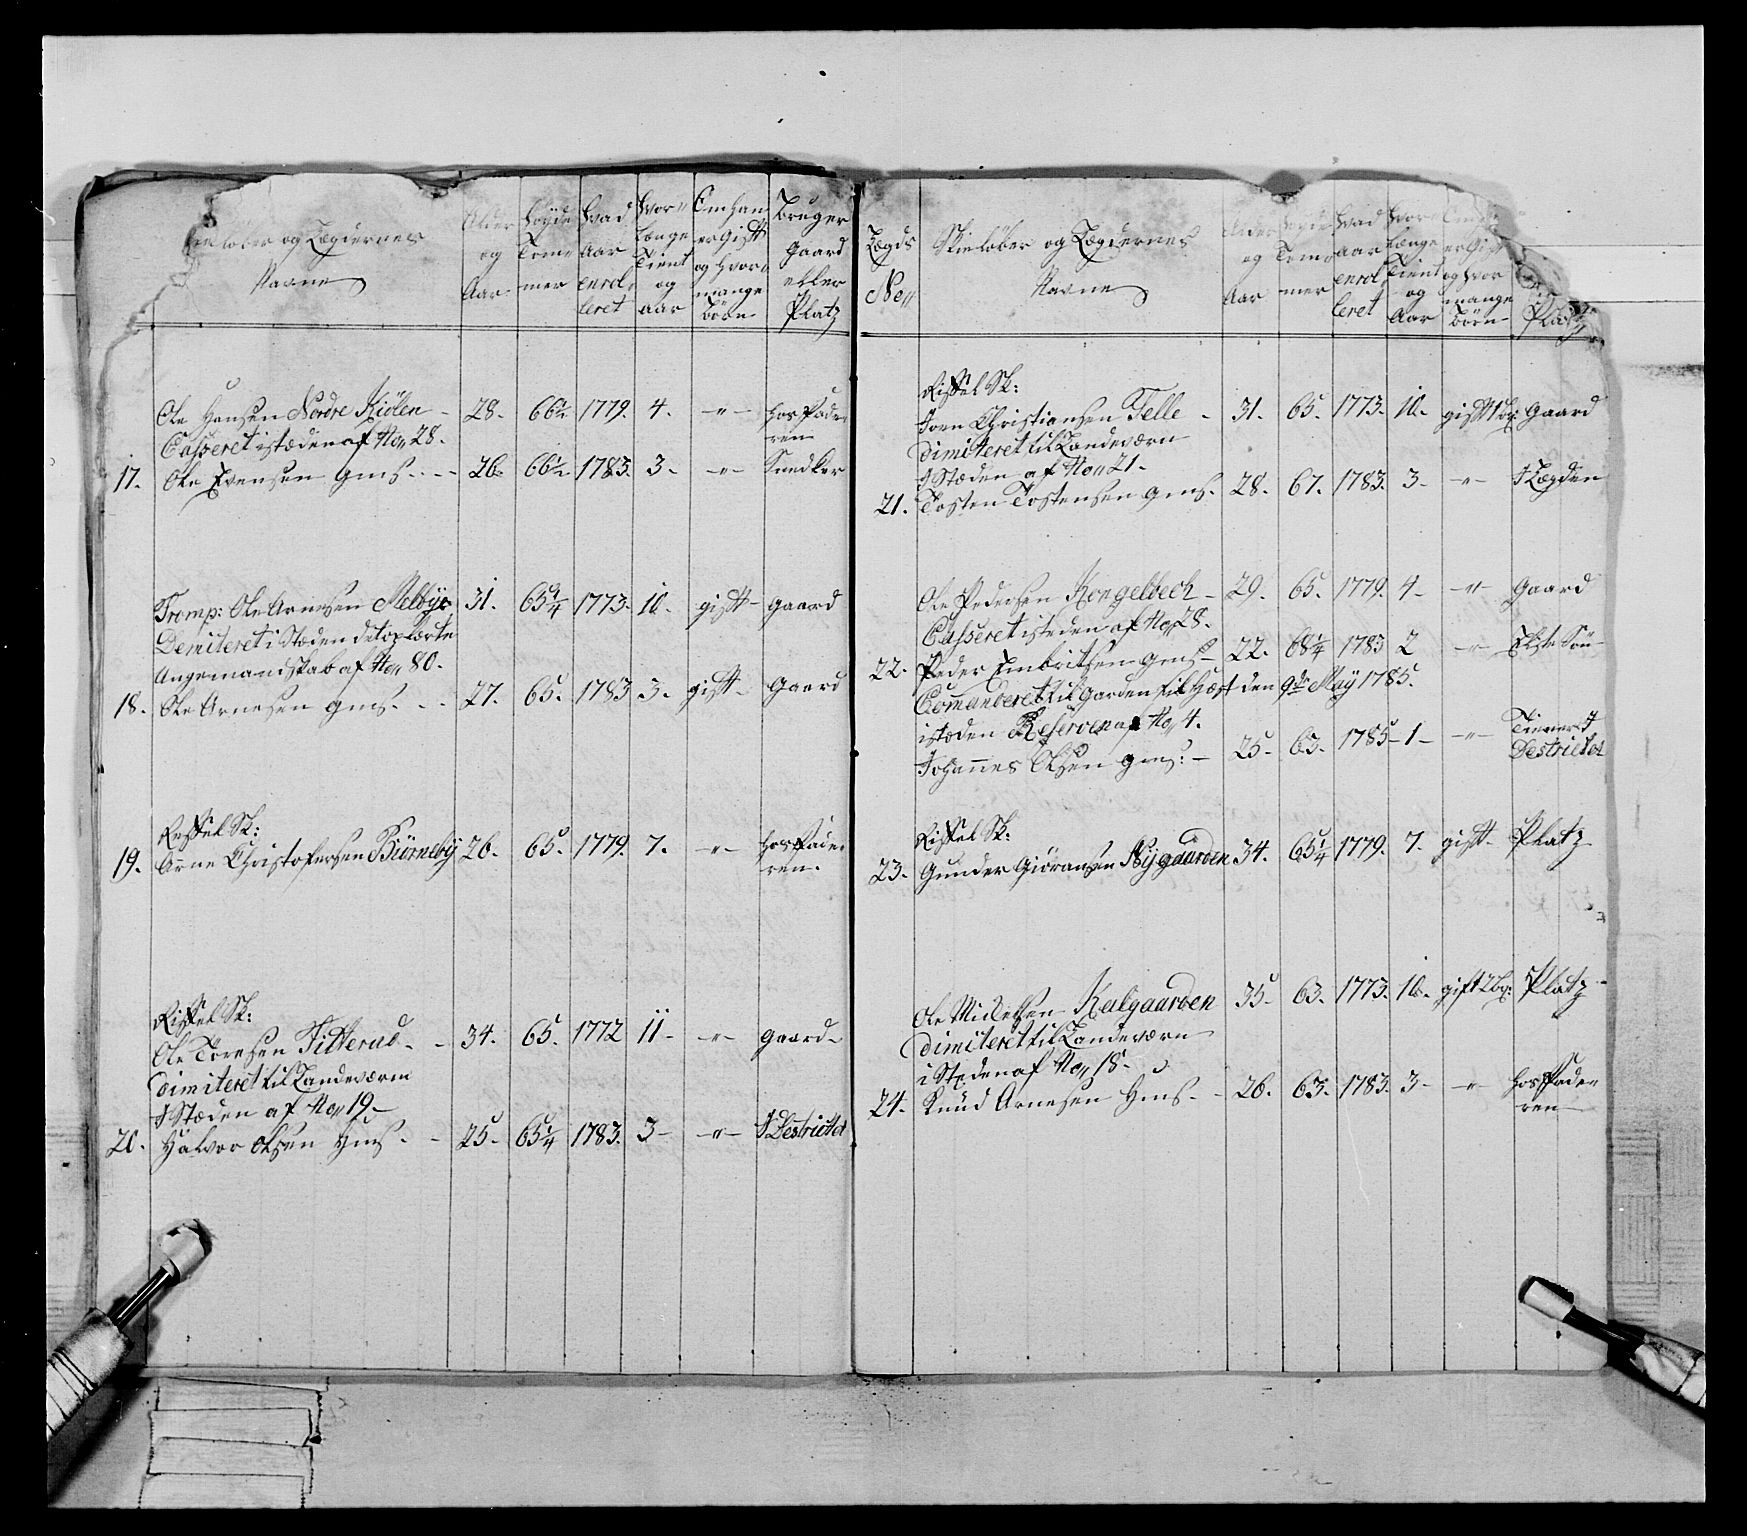 løber og Lægdernes
Navne
Alder
og
Aar
Høyde
Tom
mer
Hvad
Aar
enrol
leret
Hvor
længe
Tient
og
aar
Om han
er Gift
og hvor
mange
Börn
Bruger
Gaard
eller
Platz
Ole Hansen Nordre Kiölen - 28. 66½ 1779. 4. -"- hos Fade
ren
Casseret istæden af No 28.
17. Ole Evensen gms. - - 26. 66½ 1783. 3- -"- Snedker
Tromp: Ole Arnesen Melbye 31. 65¾ 1773. 10. gift- gaard
Demiteret i Stæden det oplærte
Ungemandskab af No 80.
18. Ole Arnesen gms. - - 27. 65. 1783 3. gift- gaard
Riffel Sk:
19. Arne Christofersen Biörneby 26. 65. 1779. 7. -"- hos Fade
ren.
Riffel Sk:
Ole Toresen Fitterud - - 34. 65. 1772 11- -"- gaard-
dimiteret til Landeværn
I Stæden af No 19.-
20. Halvor Olsen Hms. - 25- 65¼ 1783. 3- -"- I Destrictet
Lægds
No
Skieløber og Lægdernes
Navne
Alder
og
Aar
Høyde
Tom
mer
Hvad
aar
enrol
leret
Hvor
længe
Tient
og
Aar
er Gift
og hvor
mange
Börn
Platz
Riffel Sk:
Joen Christiansen Felle - 31. 65. 1773. 10. gift 1 b: gaard
dimiteret til Landeværn
I Stæden af No 21.
21. Tosten Tostensen gms. 28. 67. 1783. 3- -"- I Lægden
Ole Pedersen Kongelbech - 29. 65. 1779. 4- -"- gaard
Casseret isteden af No 28.
22. Peder Embritsen gms - 22. 68¼ 1783 2 -"- Elste Sön
Comanderet til Garden til Hæst den 9de Maÿ 1785.
istæden Reserven af No 4.
Johannes Olsen gms: - 25- 63. 1785- 1- -"- Tiener I
Destrictet
Riffel Sk:
23. Gunder Giöransen Nÿgaarden 34. 65¼ 1779. 7. gift- Platz
Ole Nielsen Kalgaarden 35- 63. 1773. 10. gift 2 b: Platz
dimiteret til Landeværn
i Steden af No 18.
24. Knud Arnesen Hms. - 26. 63. 1783. 3- -"- hos Fade
ren